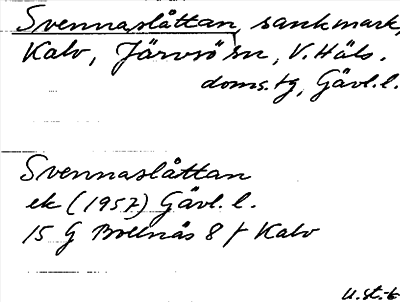 Svennaslåttan, sankmark,
Kalv, Järvsö sn, V. Häls.
doms. tg, Gävl. l.
Svennaslåttan
ek (1957) Gävl. l.
15 G Bollnäs 8 f Kalv